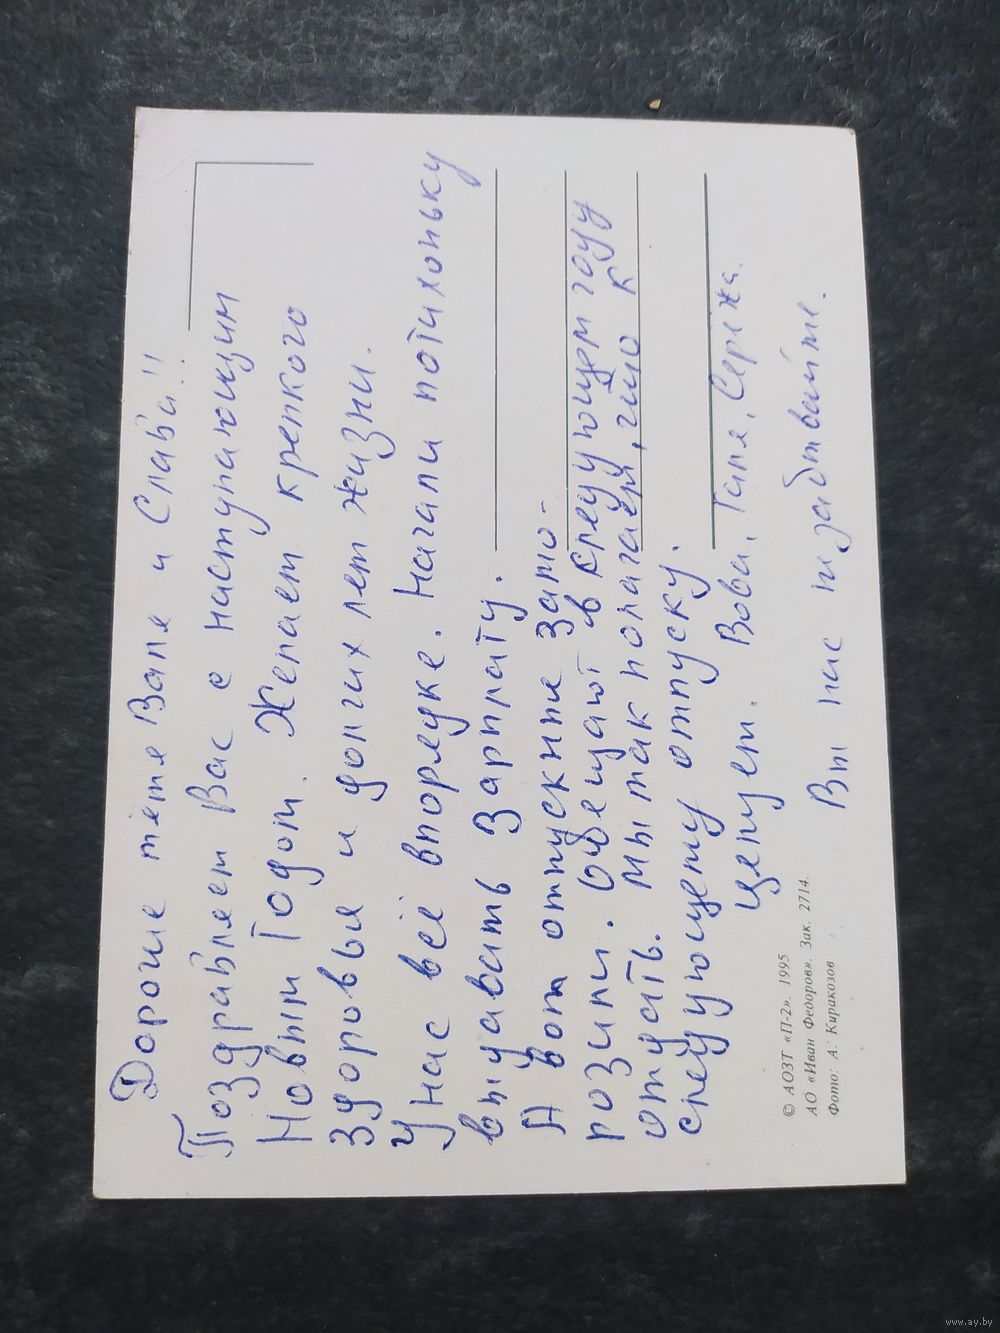 Дорогие тётя Валя и Слава!!
Поздравляем Вас с наступающим
Новым Годом. Желаем крепкого
здоровья и долгих лет жизни.
У нас всё впорядке. Начали потихоньку
выдавать Зарплату.
А вот отпускные замо-
розили. Обещают в следующем году
отдать. Мы так полагаем, что к
следующему отпуску.
Целуем. Вова, Галя, Серёжа.
Вы нас не забывайте.
© АОЗТ «П-2». 1995
АО «Иван Федоров». Зак. 2714.
Фото: А. Киракозов
www.ay.by